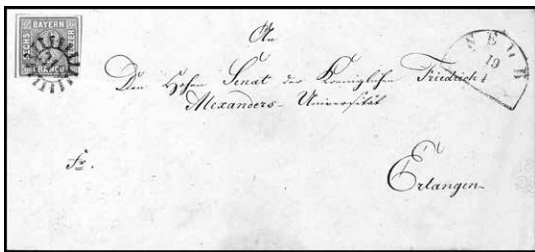 BAYERN
SECHS
SELB
19
An
Den Hohen Senat der Königlichen Friedrich
Alexanders-Universität
Fr.
Erlangen